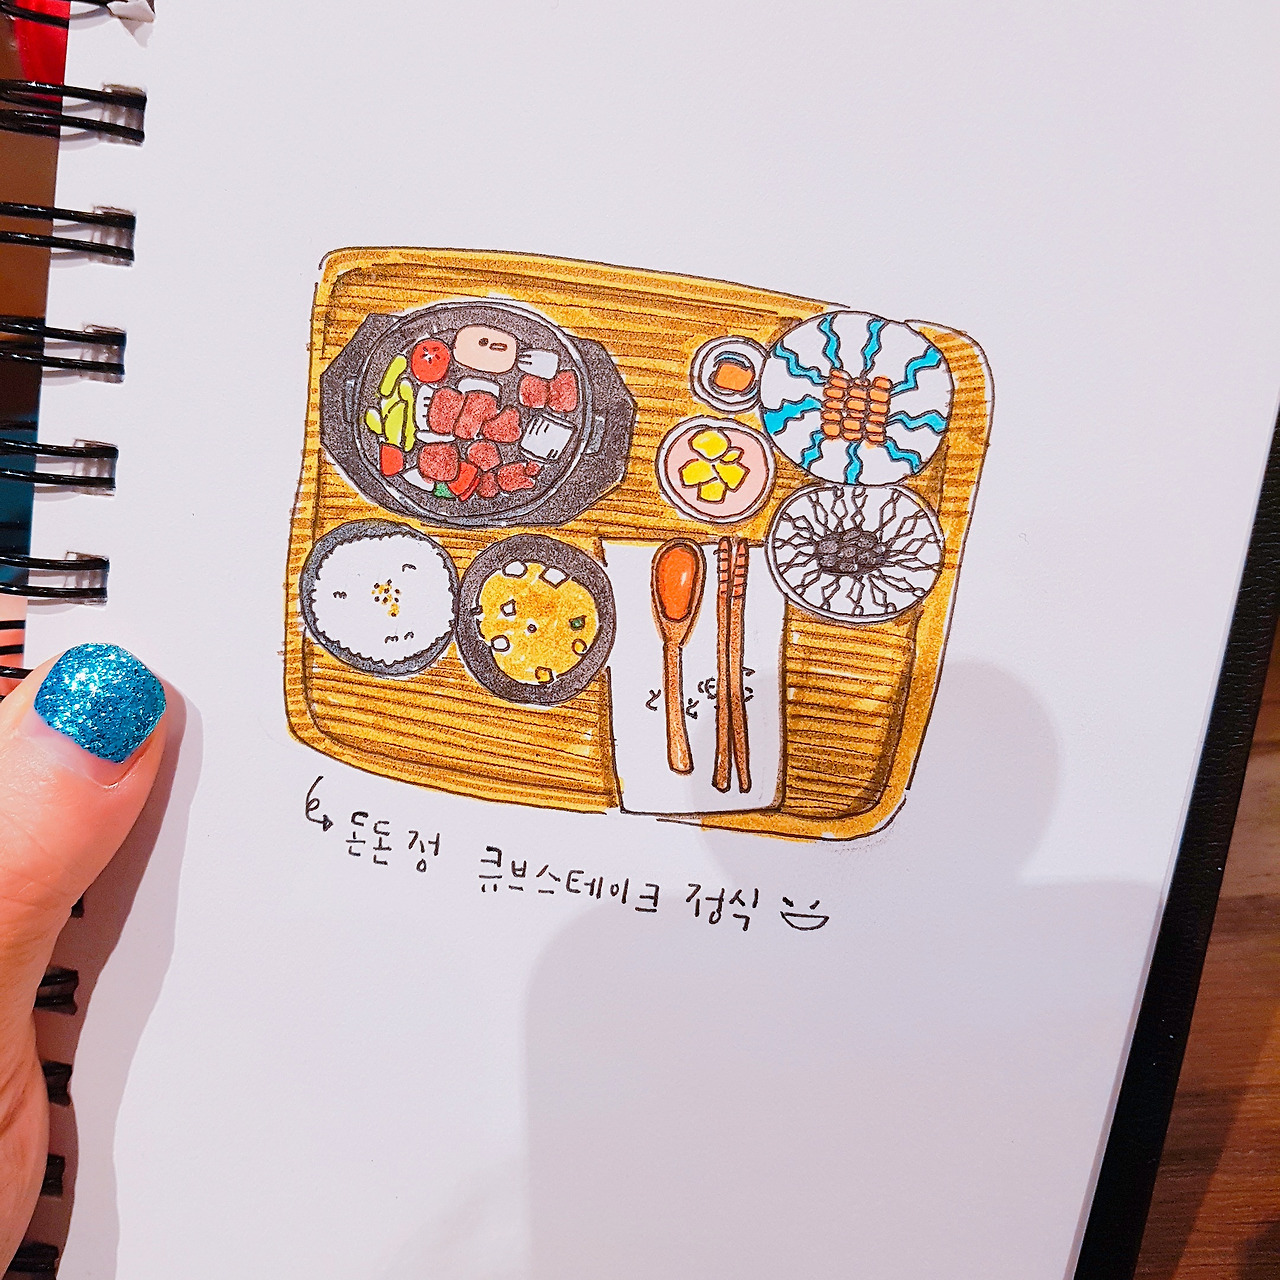 돈돈정 큐브스테이크 정식